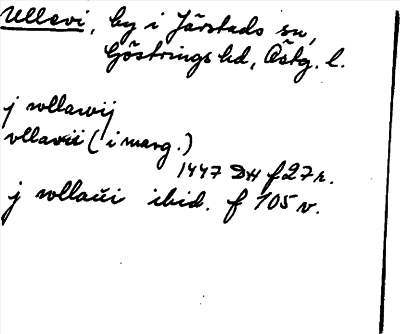 Ullevi, by i Järstads sn,
Göstrings hd, Östg. l.
j wllawij
vllavii (i marg.)
1447 DH f 27 r.
j wllaui ibid. f 105 v.